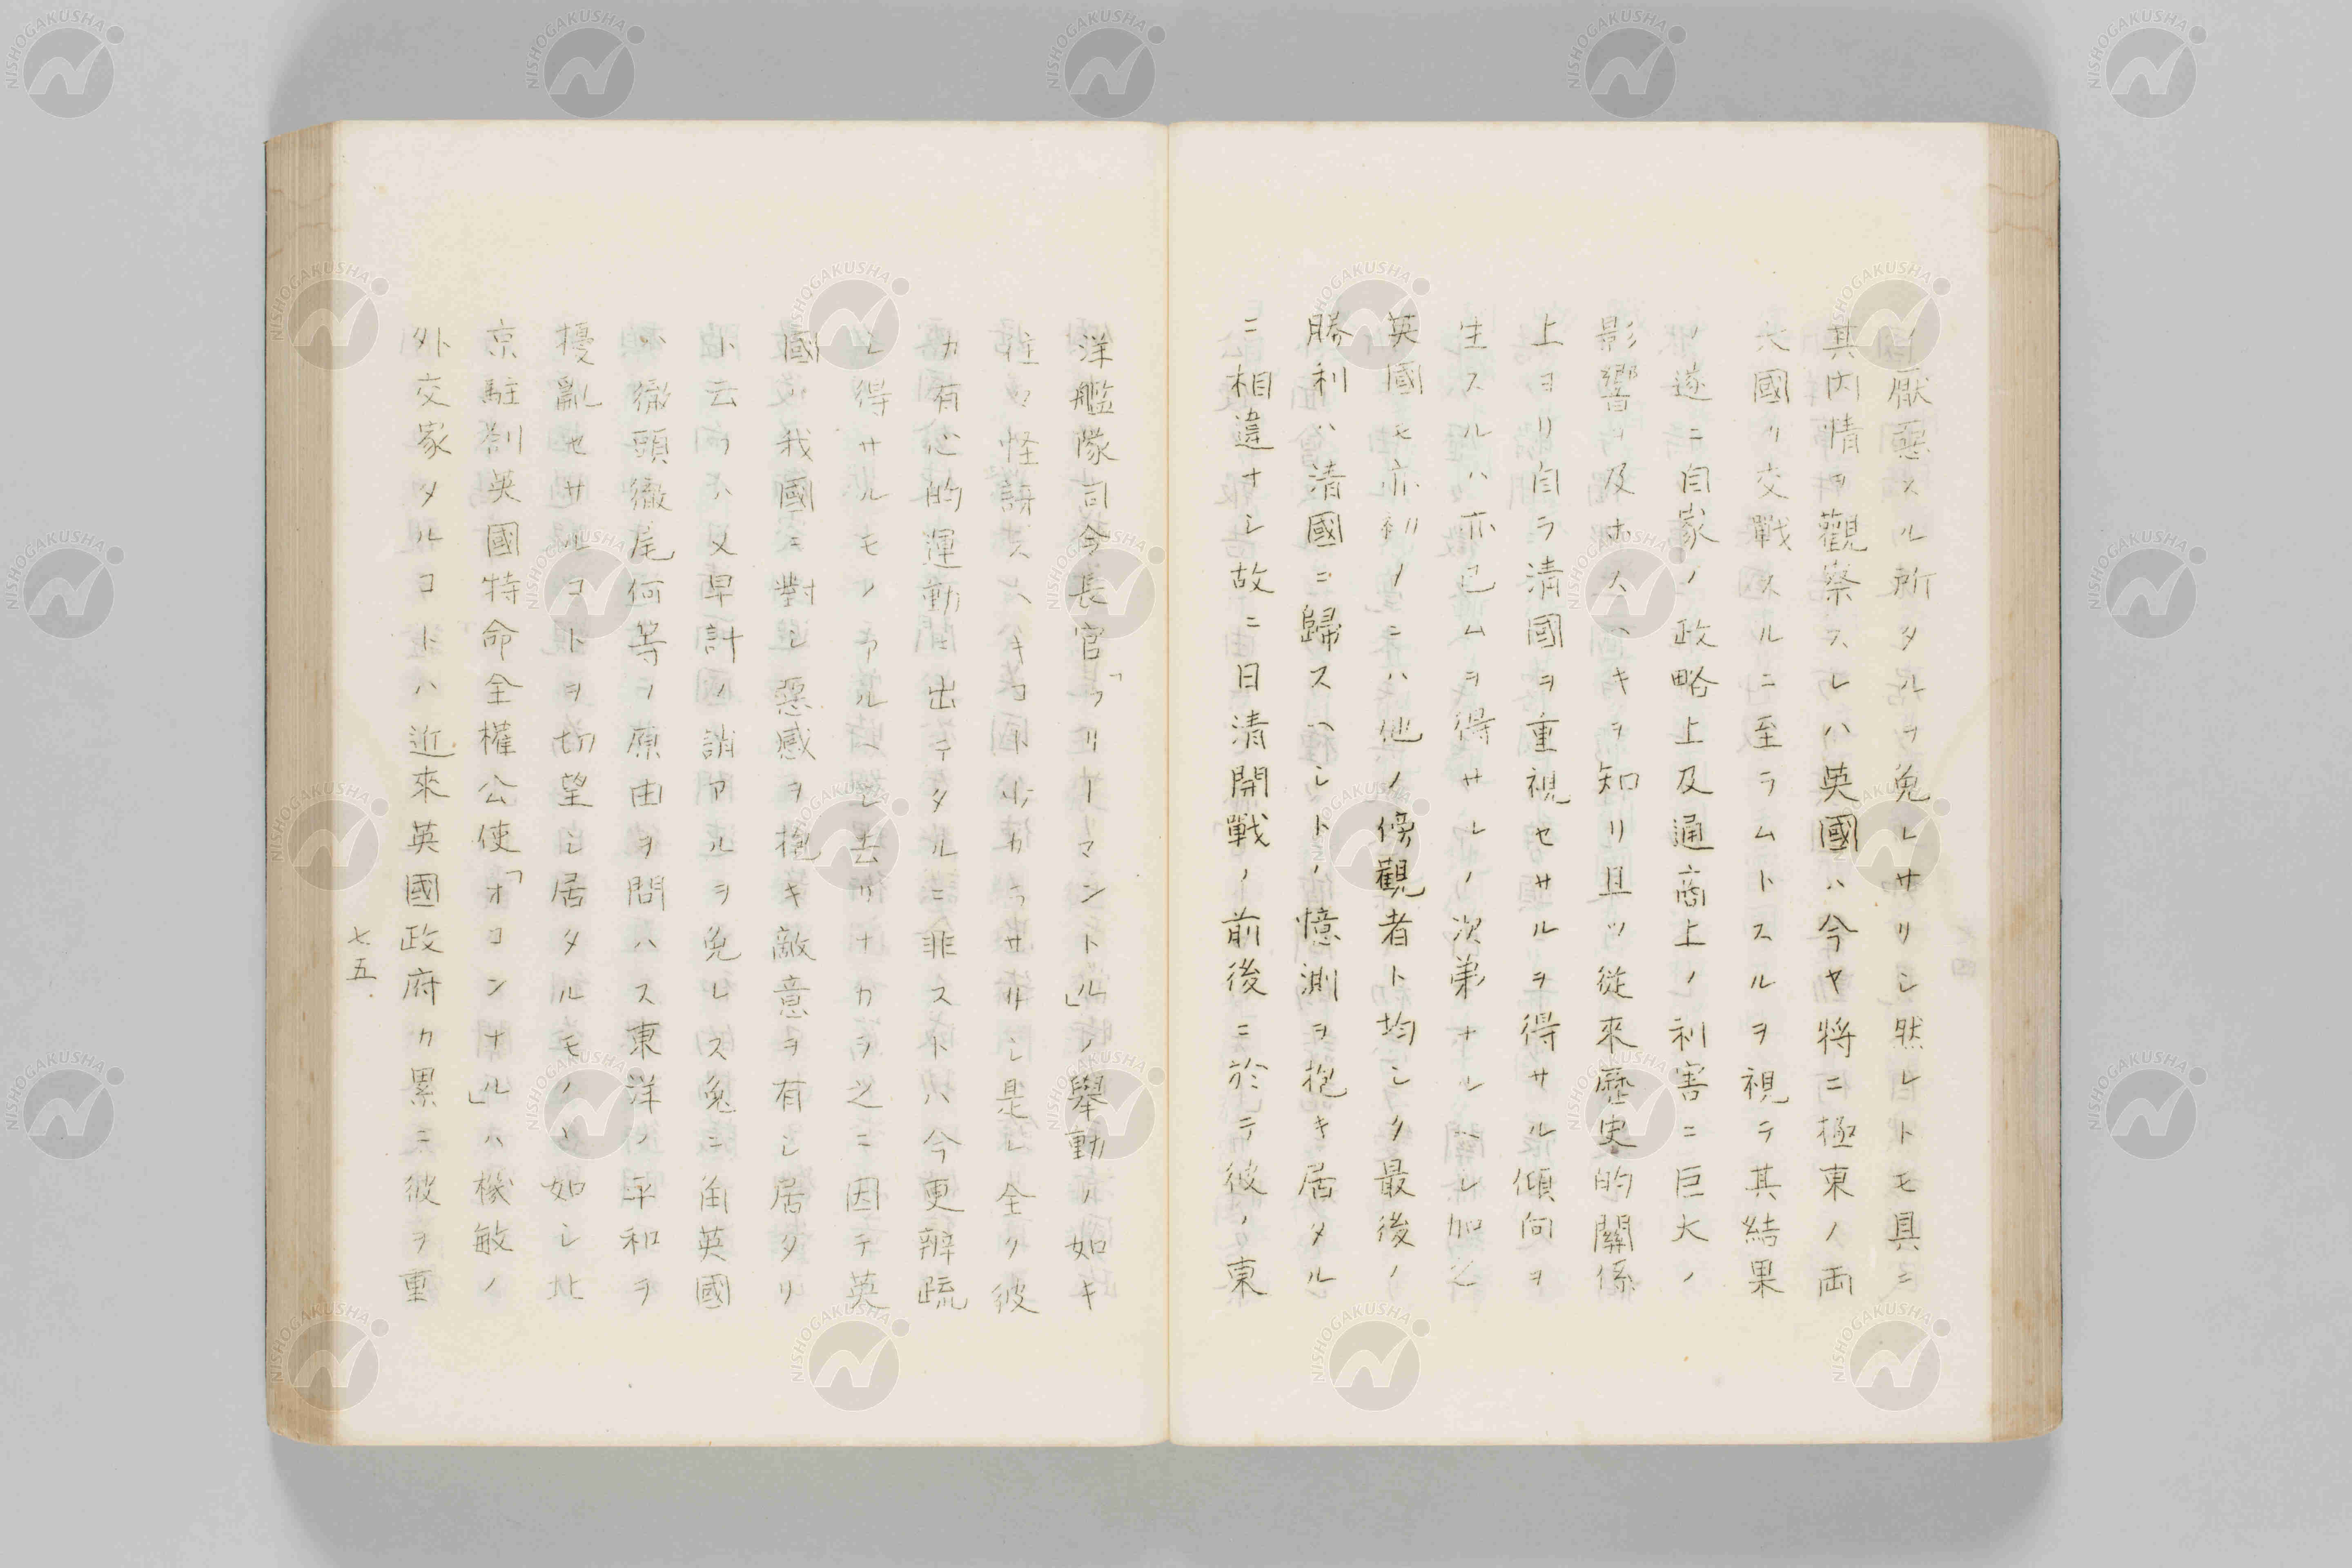 ノ厭惡スル所タルヲ免レサリシ然レトモ具ニ
其内情ヲ觀察スレハ英國ハ今ヤ將ニ極東ノ両
大國カ交戰スルニ至ラムトスルヲ視テ其結果
ノ遂ニ自家ノ政略上及通商上ノ利害ニ巨大ノ
影響ヲ及ホスヘキヲ知リ且ツ從來歷史的關係
上ヨリ自ラ清國ヲ重視セサルヲ得サル傾向ヲ
生スルハ亦已ムヲ得サルノ次第ナルヘシ加之
英國モ亦初メニハ他ノ傍觀者ト均シク最後ノ
勝利ハ清國ニ歸スヘシトノ憶測ヲ抱キ居タル
ニ相違ナシ故ニ日清開戰ノ前後ニ於テ彼ノ東
洋艦隊司令長官「フリーマントル」ノ舉動ノ如キ
往々怪訝スヘキコト少カラサリシ是レ全ク彼
カ有心的運動ニ出テタルニ非ストハ今更辨疏
シ得サルモノアルヘシ去リナカラ之ニ因テ英
國ハ我國ニ對シ惡感ヲ抱キ敵意ヲ有シ居タリ
ト云フハ又早計ノ誚アルヲ免レス兔ニ角英國
ハ徹頭徹尾何等ノ原由ヲ問ハス東洋ノ平和ヲ
擾亂セサルコトヲ切望シ居タルモノヽ如シ北
京駐剳英國特命全權公使「オコンナル」ハ機敏ノ
外交家タルコトハ近來英國政府カ累ニ彼ヲ重
七五
NISHOGAKUSHA